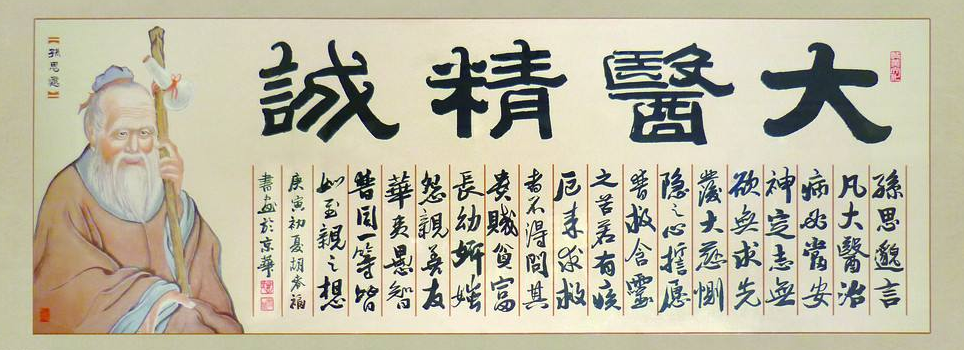 大醫精誠
孫思邈言
凡大醫治
病必當安
神定志無
欲無求先
發大慈惻
隱之心誓願
普救含靈
之苦若有疾
厄来求救
者不得問其
貴賤貧富
長幼妍媸
怨親善友
華夷愚智
普同一等皆
如至親之想
庚寅初夏胡福
書畫於京華
【孫思邈】